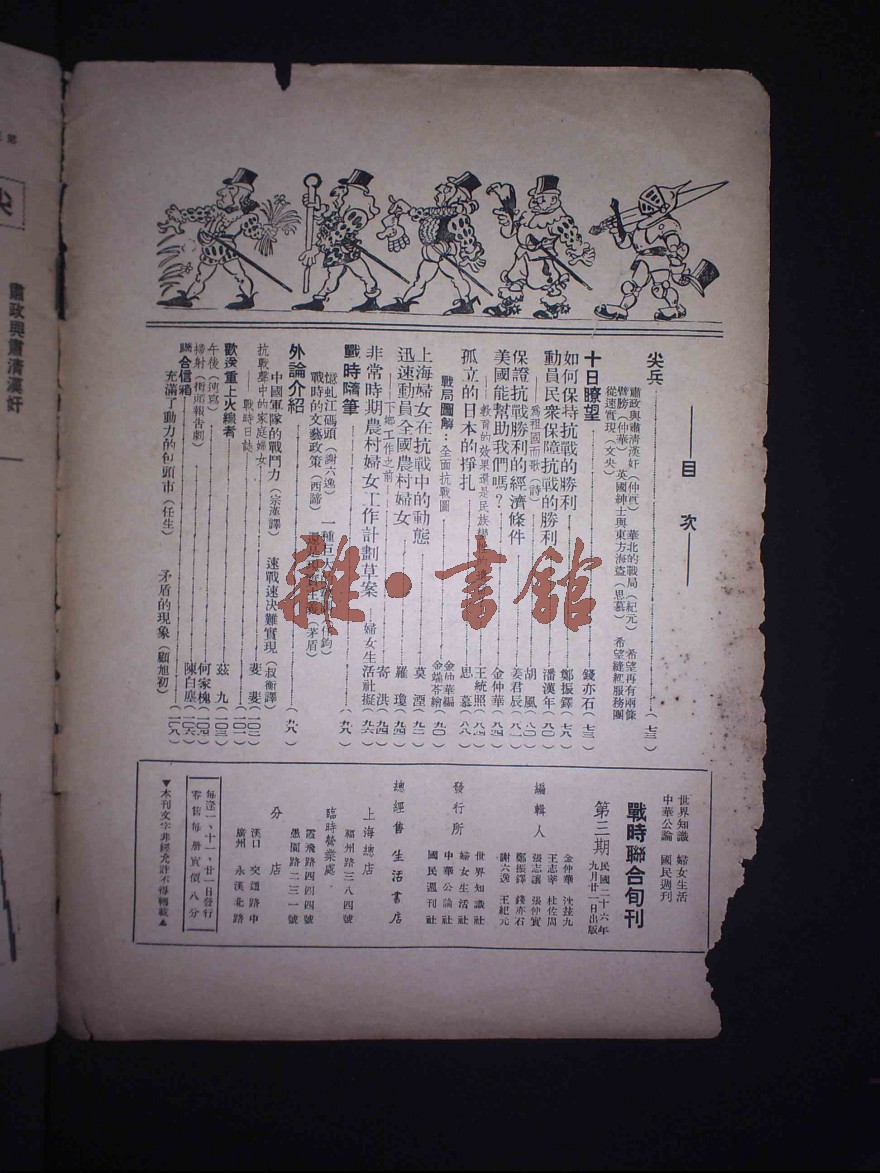 目次
尖兵……(七三)
肅政與肅清漢奸(仲頁) 華北的戰局(紀元) 希望再有兩條
臂膀(仲華) 英國紳士與東方海盜(思慕) 希望縫紉服務團
從速實現(文央)
十日瞭望……錢亦石…(七三)
如何保持抗戰的勝利……鄭振鐸…(七八)
動員民衆保障抗戰的勝利……潘漢年…(八〇)
爲祖國而歌(詩)……胡風…(八〇)
保證抗戰勝利的經濟條件……姜君辰…(八一)
美國能幫助我們嗎?……金仲華…(八四)
教育的效果還是民族
王統照…(八四)
孤立的日本的掙扎……思慕…(八八)
戰局圖解:全面抗戰圖……金仲華編 金端苓繪(九〇)
上海婦女在抗戰中的動態……莫湮…(九二)
迅速動員全國農村婦女……羅瓊…(九四)
下鄉工作之前……寄洪…(九四)
非常時期農村婦女工作計劃草案……婦女生活社擬(九六)
戰時隨筆……(九八)
憶虬江碼頭(謝六逸) 一種巨大
戰時的文藝政策(西諦)
(茅盾)
外論介紹……(九八)
中國軍隊的戰鬥力(宗滙譯) 速戰速决難實現(叔衡譯)
抗戰聲中的家庭婦女……斐斐…(一〇二)
戰時日誌……(一〇一)
歡送重上火線者……茲九…(一〇三)
午後(速寫)……何家槐(一〇四)
掃射(街頭報告劇)……陳白塵(一〇六)
聯合信箱……(一〇八)
充滿了動力的包頭市(任生) 矛盾的現象(顧旭初)
世界知識 婦女生活
中華公論 國民週刊
戰時聯合旬刊
第三期
民國二十六年
九月廿一日出版
編輯人
金仲華 沈茲九
王志莘 杜佐周
張志讓 張仲實
鄭振鐸 錢亦石
謝六逸 王紀元
發行所
世界知識社
婦女生活社
中華公論社
國民週刊社
總經售 生活書店
上海總店
福州路三八四號
臨時營業處
霞飛路四四四號
愚園路二三一號
分店
漢口 交通路中
廣州 永漢北路
每逢一、十一、廿一日發行
零售每册實價八分
▼本刊文字非經允許不得轉載▲
雜·書館
肅政與肅清漢奸